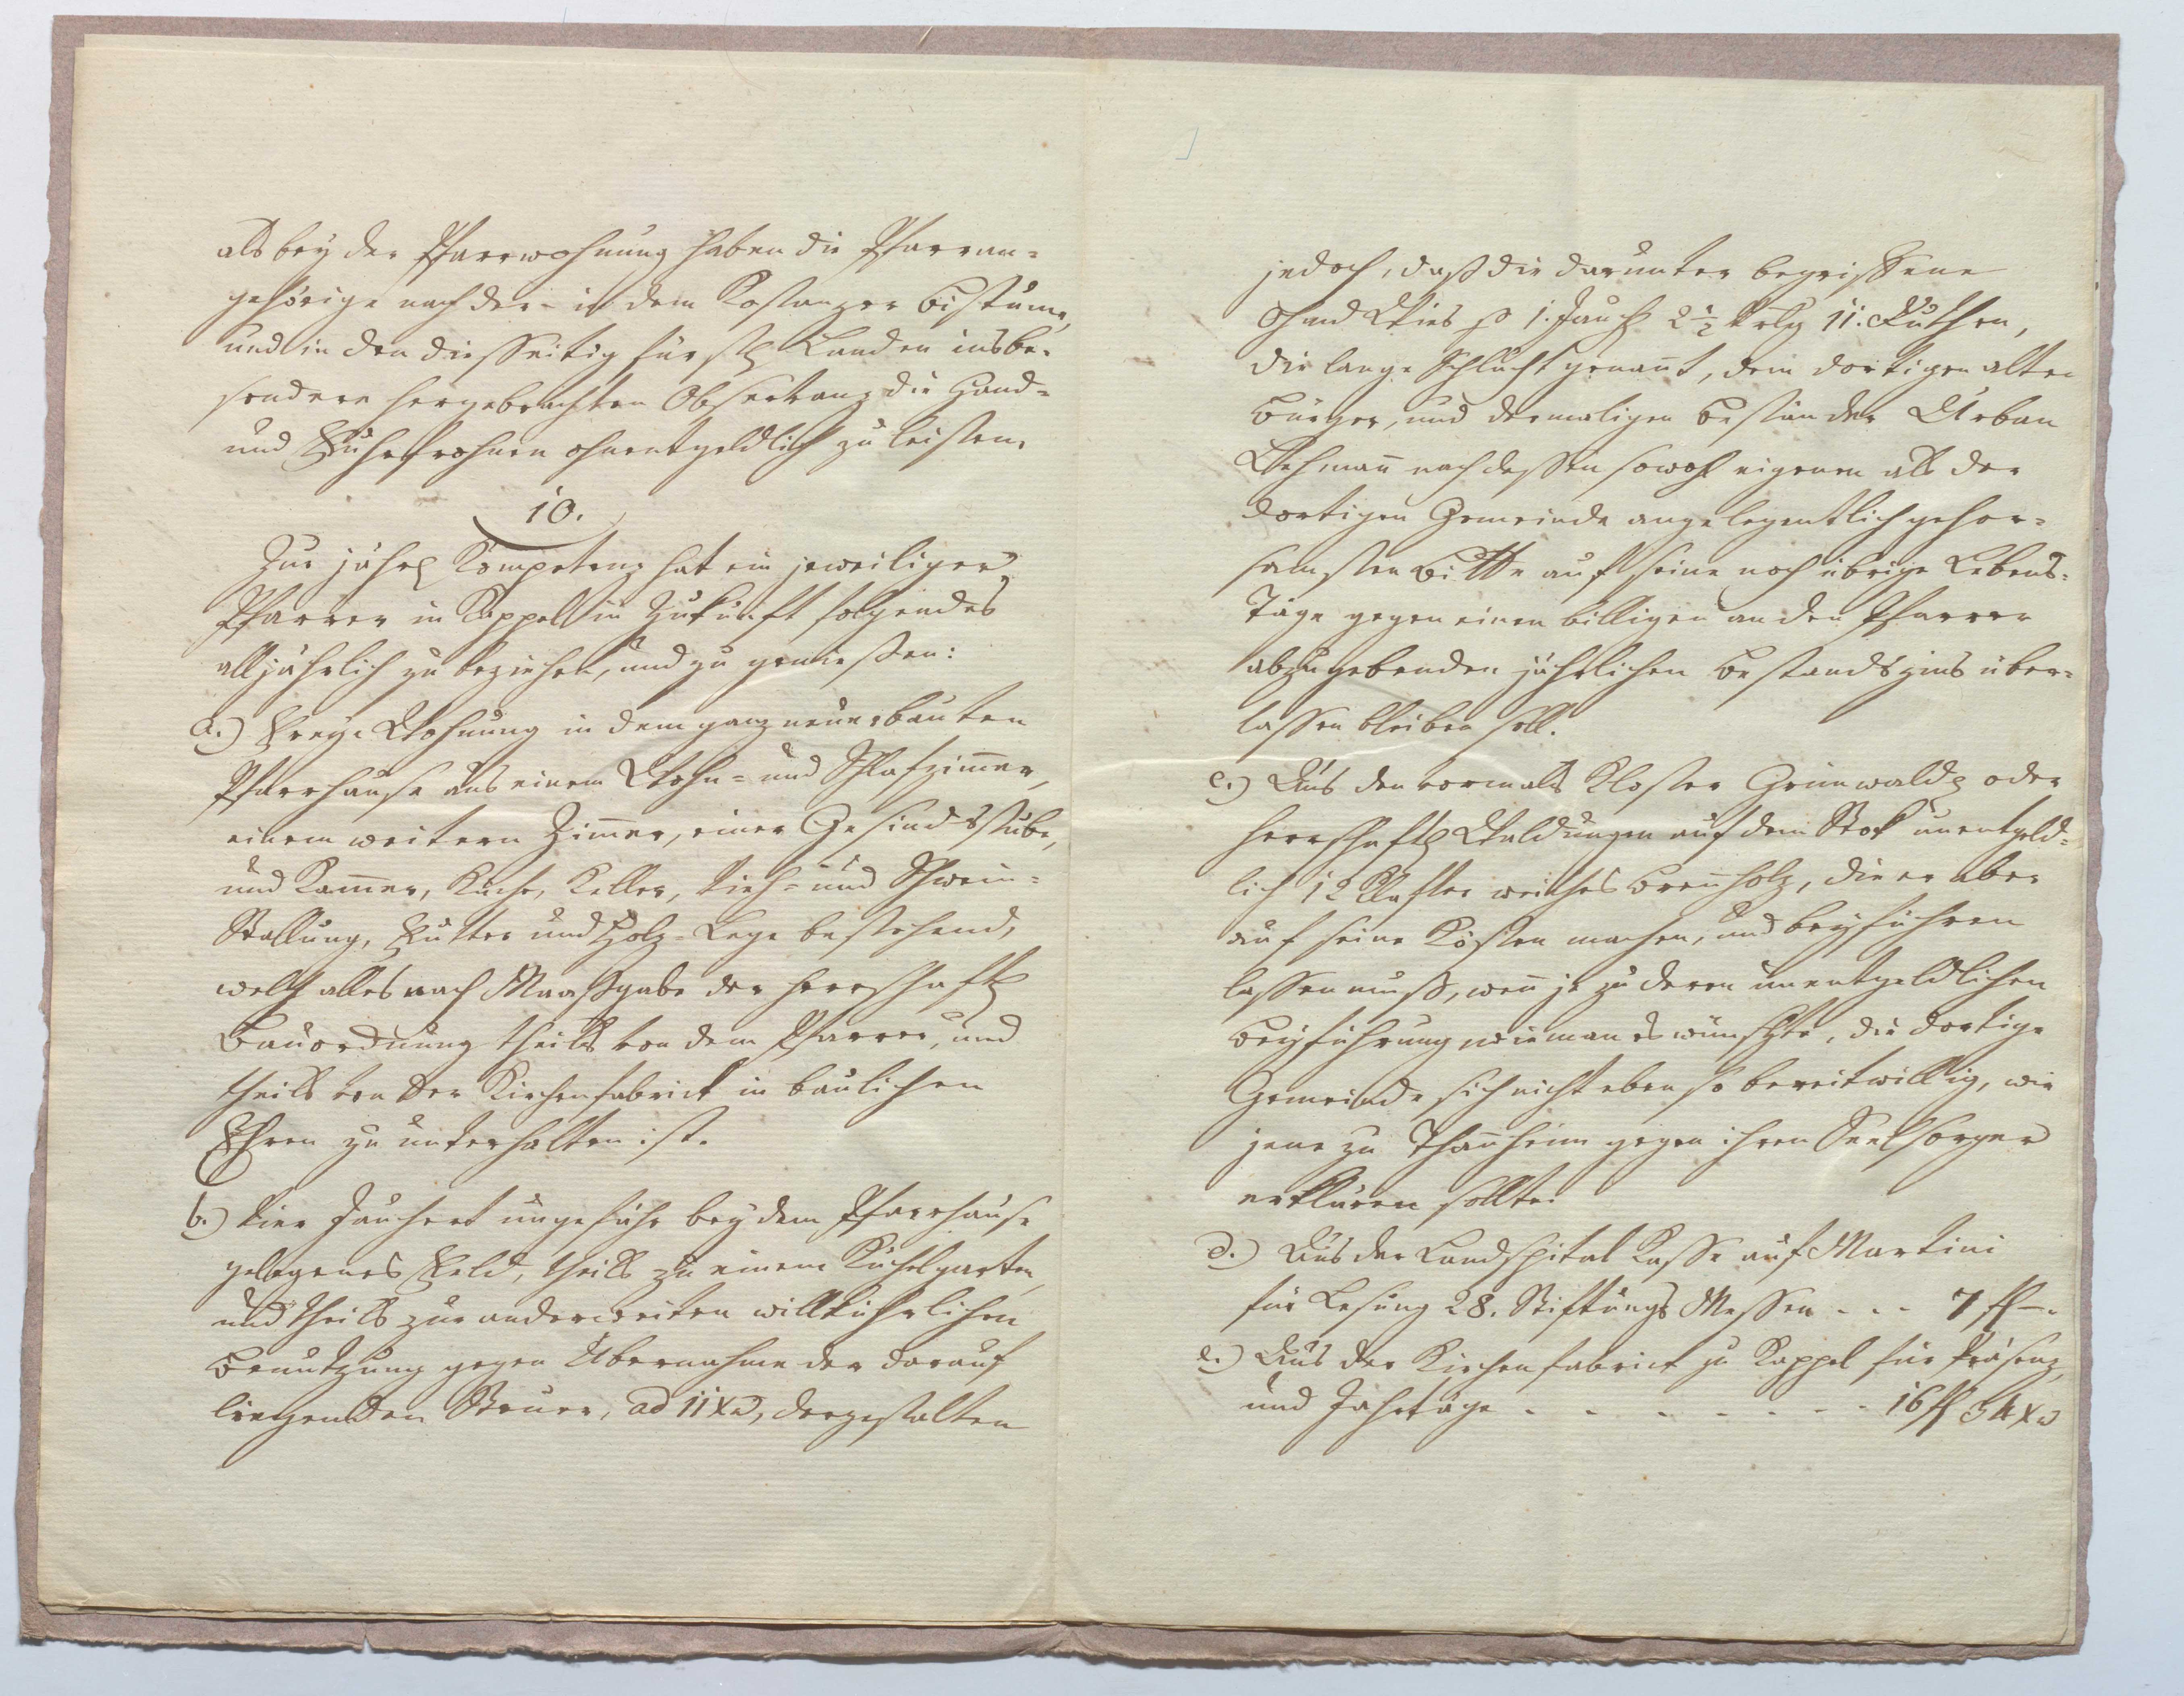 als bey der Pfarrwohnung haben die Pfarran=
gehörige nach der in dem Kostanzer Bistume,
und in den diesseitig fürstl Landen insbe=
sondere hergebrachten Observanz die Hand=
und Fuhrfrohnen ohnentgeldlich zu leisten.
10.
Zur jährl Kompetenz hat ein jeweiliger
Pfarrer in Kappel in Zukunft folgendes
alljährlich zu beziehen, und zu geniessen:
a.) Freye Wohnung in dem ganz neuerbauten
Pfarrhause aus einem Wohn= und Schlafzim̄er,
einem weitern Zim̄er, einer Gesindsstube,
und Kam̄er, Küche, Keller, Vieh= und Schwein=
Stallung, Futter und Holz=Lege bestehend,
welch alles nach Maaßgabe der herrschaftl
Bauordnung theils von dem Pfarrer, und
theils von der Kirchenfabrick in baulichen
Ehren zu unterhalten ist.
b.) Vier Jauchert ungefähr bey dem Pfarrhause
gelegenes Feld, theils zu einem Kuchelgarten,
und theils zur anderweiten willkührlichen
Benutzung gegen Übernahme der darauf
liegenden Steuer, ad 11 xr, dergestalten
jedoch, daß die darunter begriffene
1. Jauch 2½ Vrlg 11. Ruthen,
die lange Schlucht genan̄t, dem dortigen alten
Bürger, und dermaligen Beständer Urban
Lehman̄ nach dessen sowohl eigenen als der
dortigen Gemeinde angelegentlich gehor=
samsten Bitte auf seine noch übrige Lebens=
Täge gegen einen billigen an den Pfarrer
abzugebenden jährlichen Bestandszins über=
lassen bleiben soll.
c.) Aus den vormals Kloster Grünwaldl oder
herrschaftl Waldungen auf dem Stock unentgeld=
lich 12 Klafter weiches Bren̄holz, die er aber
auf seine Kösten machen, und beyführen
lassen muß, wen̄ je zu deren unentgeldlichen
Beyführung wie man es wünschte, die dortige
Gemeinde sich nicht eben so bereitwillig, wie
jene zu Than̄heim gegen ihren Seelsorger
erklären sollte.
d.) Aus der Landspital Kasse auf Martini
für Lesung 28. Stiftungs Messen - - - 7 fl —.
e.) Aus der Kirchenfabrick zu Kappel für Präsenz,
und Jahrtäge - - - - - - - - 16 fl 34 xr